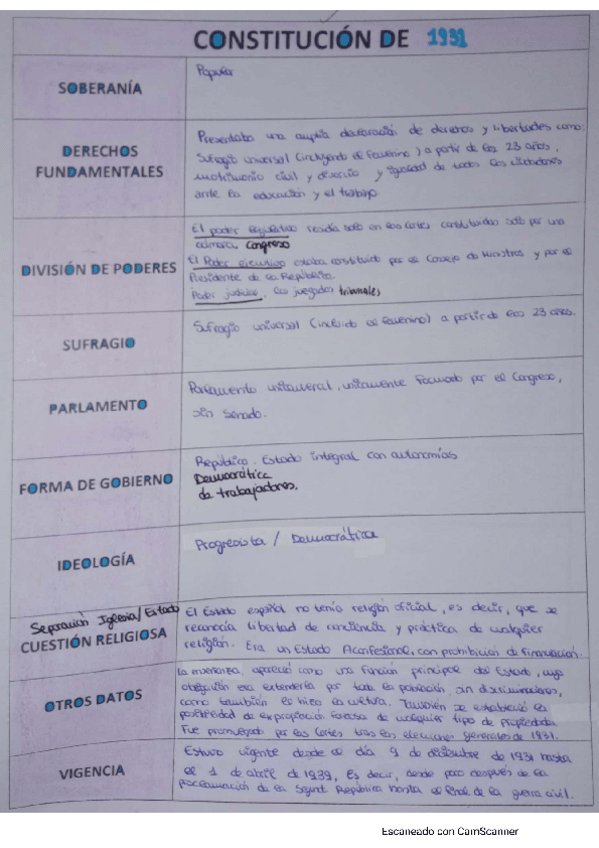 CONSTITUCIÓN DE 1931
SOBERANÍA
Popular
DERECHOS
FUNDAMENTALES
Presentaba una amplia declaración de derechos y libertades como:
Sufragio universal (incluyendo el femenino) a partir de los 23 años,
matrimonio civil y divorcio y igualdad de todos los ciudadanos
ante la educación y el trabajo.
DIVISIÓN DE PODERES
El poder legislativo residía solo en las Cortes constituidas solo por una
cámara, Congreso
El Poder ejecutivo estaba constituido por el Consejo de Ministros y por el
Presidente de la República.
Poder judicial, los juzgados tribunales
SUFRAGIO
Sufragio universal (incluido el femenino) a partir de los 23 años.
PARLAMENTO
Parlamento unicameral, únicamente formado por el Congreso,
sin Senado.
FORMA DE GOBIERNO
República. Estado integral con autonomías
Democrática
de trabajadores.
IDEOLOGÍA
Progresista / Democrática
Separación Iglesia/Estado
CUESTIÓN RELIGIOSA
El Estado español no tenía religión oficial, es decir, que se
reconocía libertad de conciencia y práctica de cualquier
religión. Era un Estado Aconfesional, con prohibición de financiación.
OTROS DATOS
la enseñanza, apareció como una función principal del Estado, cuya
obligación era extenderla por toda la población, sin discriminaciones,
como también se hizo la cultura. También se estableció la
posibilidad de expropiación forzosa de cualquier tipo de propiedad.
Fue promulgada por las Cortes tras las elecciones generales de 1931.
VIGENCIA
Estuvo vigente desde el día 9 de diciembre de 1931 hasta
el 1 de abril de 1939, Es decir, desde poco después de la
proclamación de la Segund República hasta el final de la guerra civil.
Escaneado con CamScanner